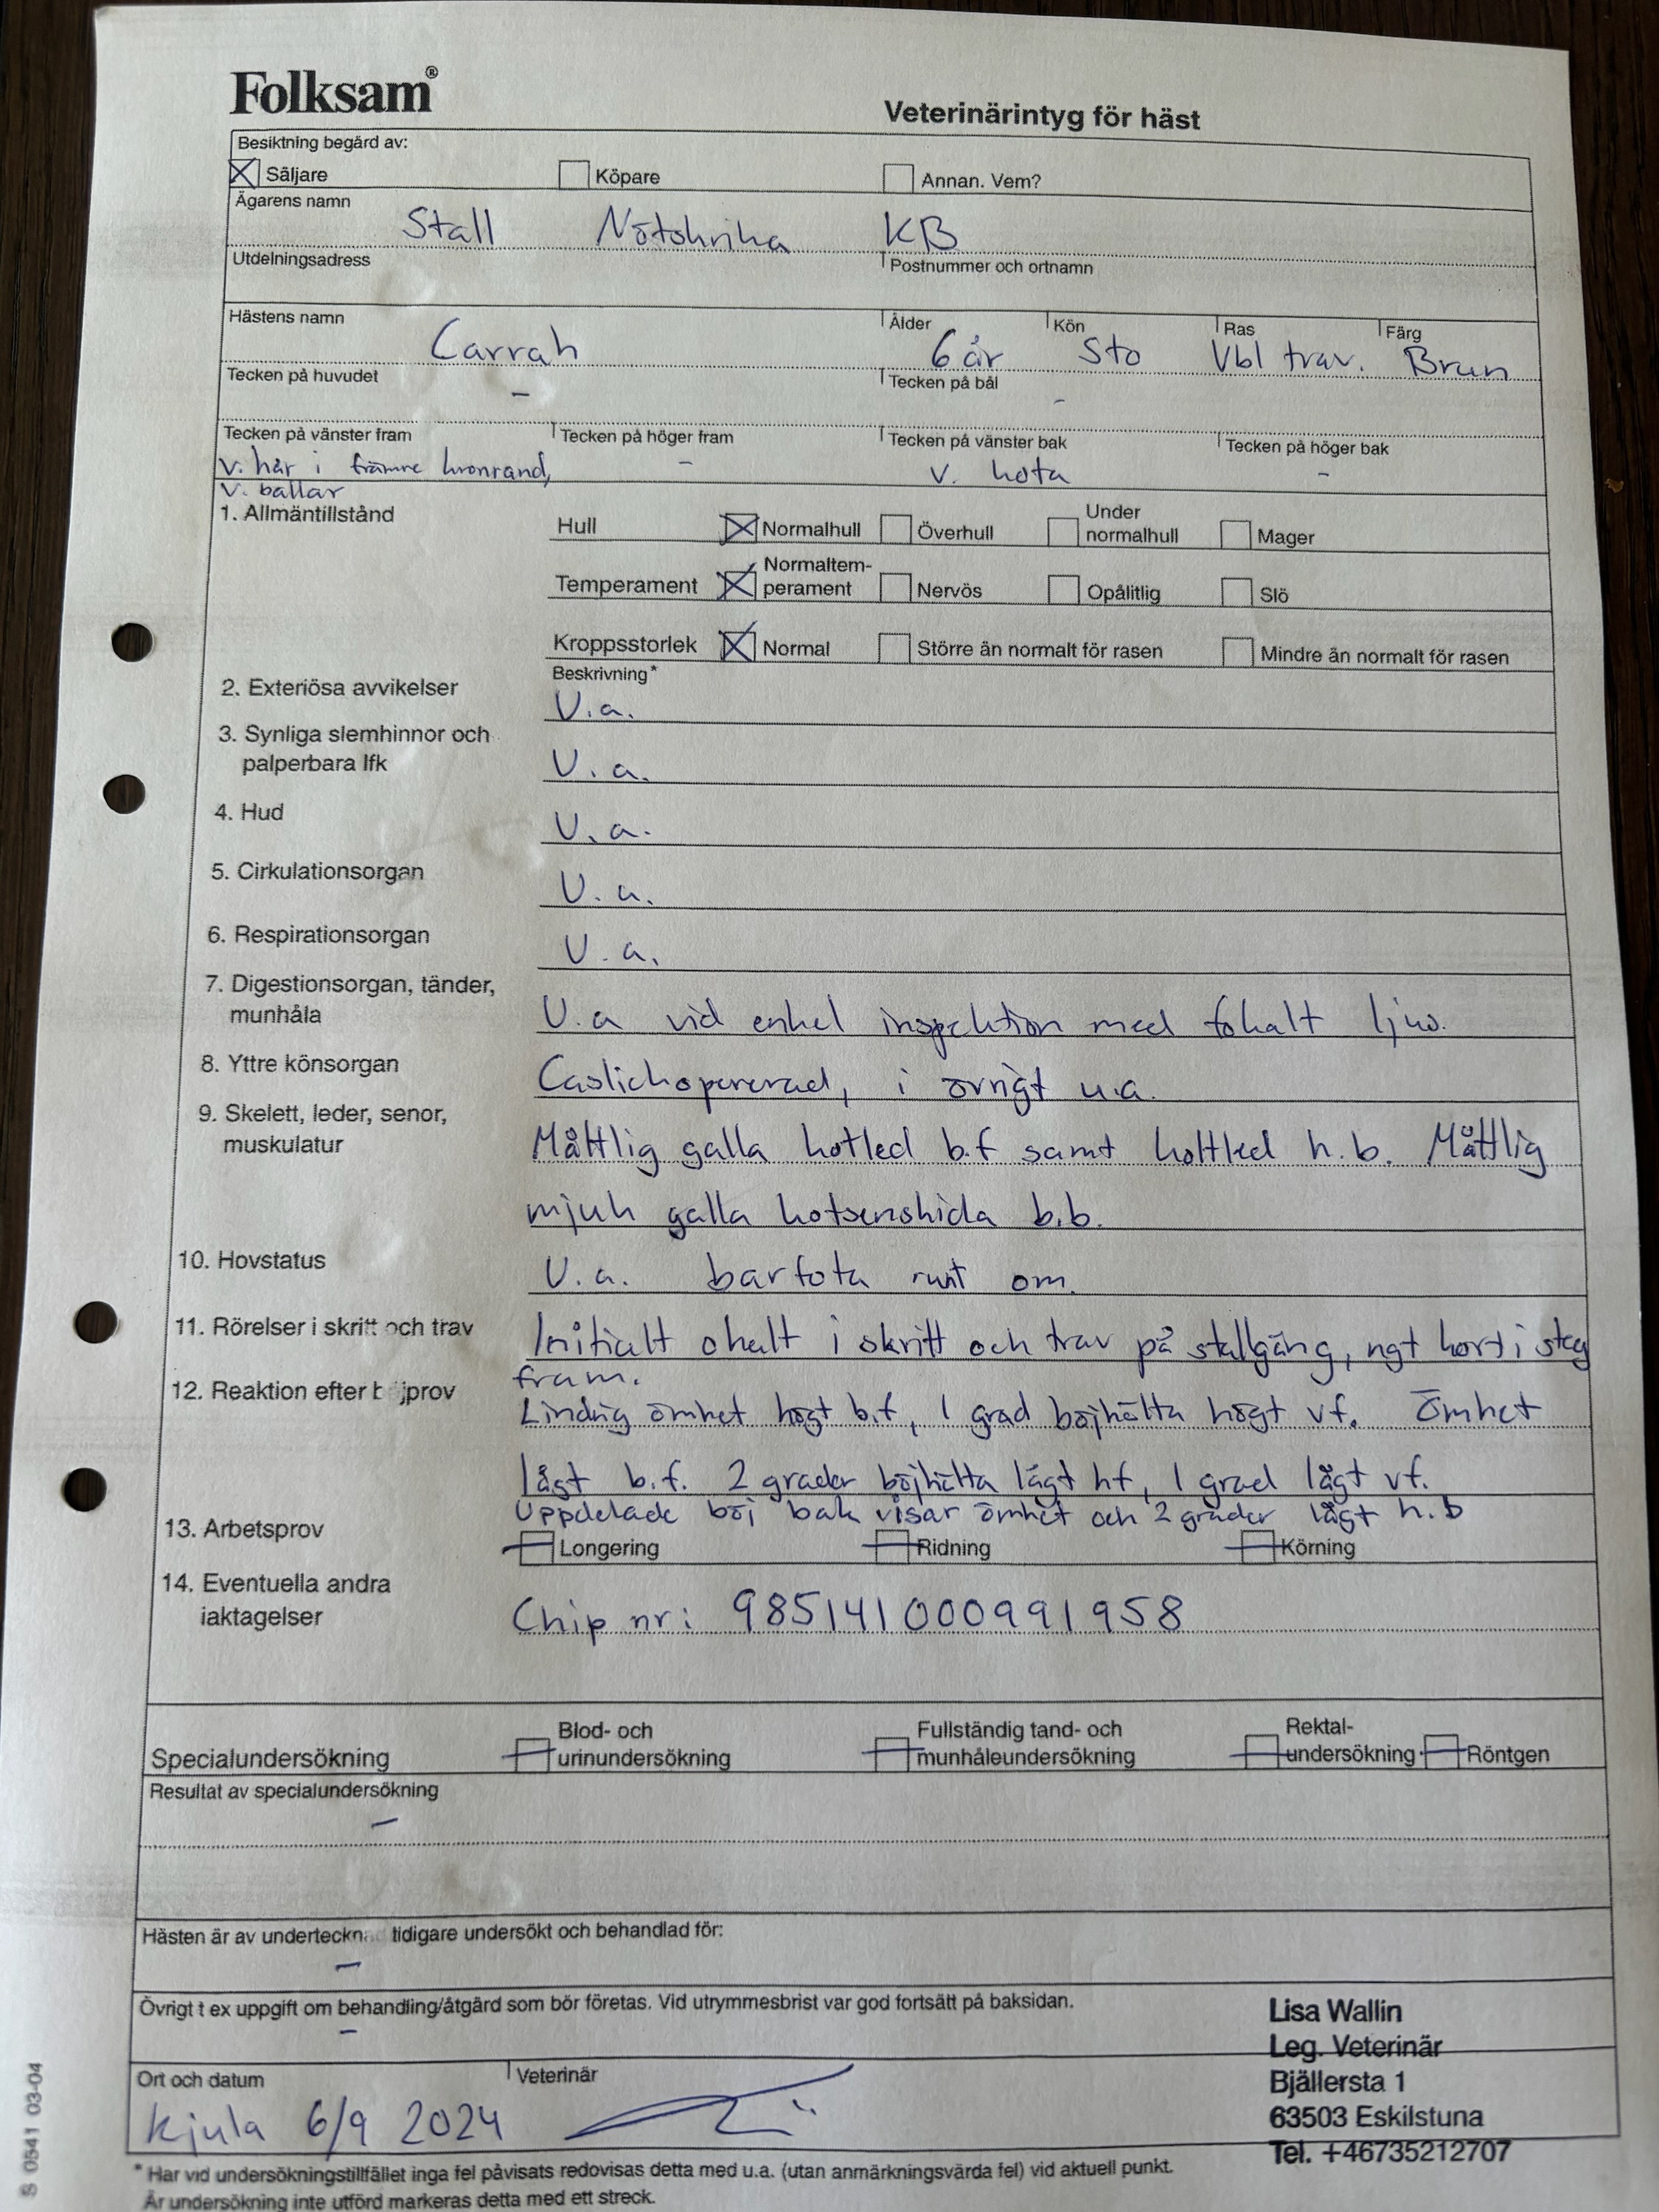 Folksam®
Veterinärintyg för häst
Besiktning begärd av:
Säljare Köpare Annan. Vem?
Ägarens namn
Stall Nötohrika KB
Utdelningsadress Postnummer och ortnamn
Hästens namn Ålder Kön Ras Färg
Carrah 6 år Sto Vbl trav. Brun
Tecken på huvudet Tecken på bål
- -
Tecken på vänster fram Tecken på höger fram Tecken på vänster bak Tecken på höger bak
v. hår i främre kronrand, - v. kota -
v. ballar
1. Allmäntillstånd
Hull Normalhull Överhull Under normalhull Mager
Temperament Normaltem-perament Nervös Opålitlig Slö
Kroppsstorlek Normal Större än normalt för rasen Mindre än normalt för rasen
Beskrivning*
2. Exteriösa avvikelser U.a.
3. Synliga slemhinnor och
palperbara lfk U.a.
4. Hud U.a.
5. Cirkulationsorgan U.a.
6. Respirationsorgan U.a.
7. Digestionsorgan, tänder,
munhåla U.a vid enkel inspektion med fokalt ljus.
8. Yttre könsorgan Caslickopererad, i övrigt u.a.
9. Skelett, leder, senor,
muskulatur Måttlig galla kotled b.f samt kotled h.b. Måttlig
mjuk galla kotsenskida b.b.
10. Hovstatus U.a. barfota runt om.
11. Rörelser i skritt och trav Initialt ohalt i skritt och trav på stallgång, ngt kort i steg
fram.
12. Reaktion efter böjprov Lindrig ömhet högt b.f, 1 grad böjhälta högt vf. Ömhet
lågt b.f. 2 grader böjhälta lågt hf, 1 grad lågt vf.
Uppdelade böj bak visar ömhet och 2 grader lågt h.b
13. Arbetsprov
Longering Ridning Körning
14. Eventuella andra
iaktagelser Chip nr: 985141000991958
Specialundersökning Blod- och urinundersökning Fullständig tand- och munhåleundersökning Rektal-undersökning Röntgen
Resultat av specialundersökning
-
Hästen är av underteckn tidigare undersökt och behandlad för:
-
Övrigt t ex uppgift om behandling/åtgärd som bör företas. Vid utrymmesbrist var god fortsätt på baksidan.
-
Lisa Wallin
Leg. Veterinär
Bjällersta 1
63503 Eskilstuna
Tel. +46735212707
Ort och datum Veterinär
Kjula 6/9 2024
* Har vid undersökningstillfället inga fel påvisats redovisas detta med u.a. (utan anmärkningsvärda fel) vid aktuell punkt.
Är undersökning inte utförd markeras detta med ett streck.
S 0541 03-04